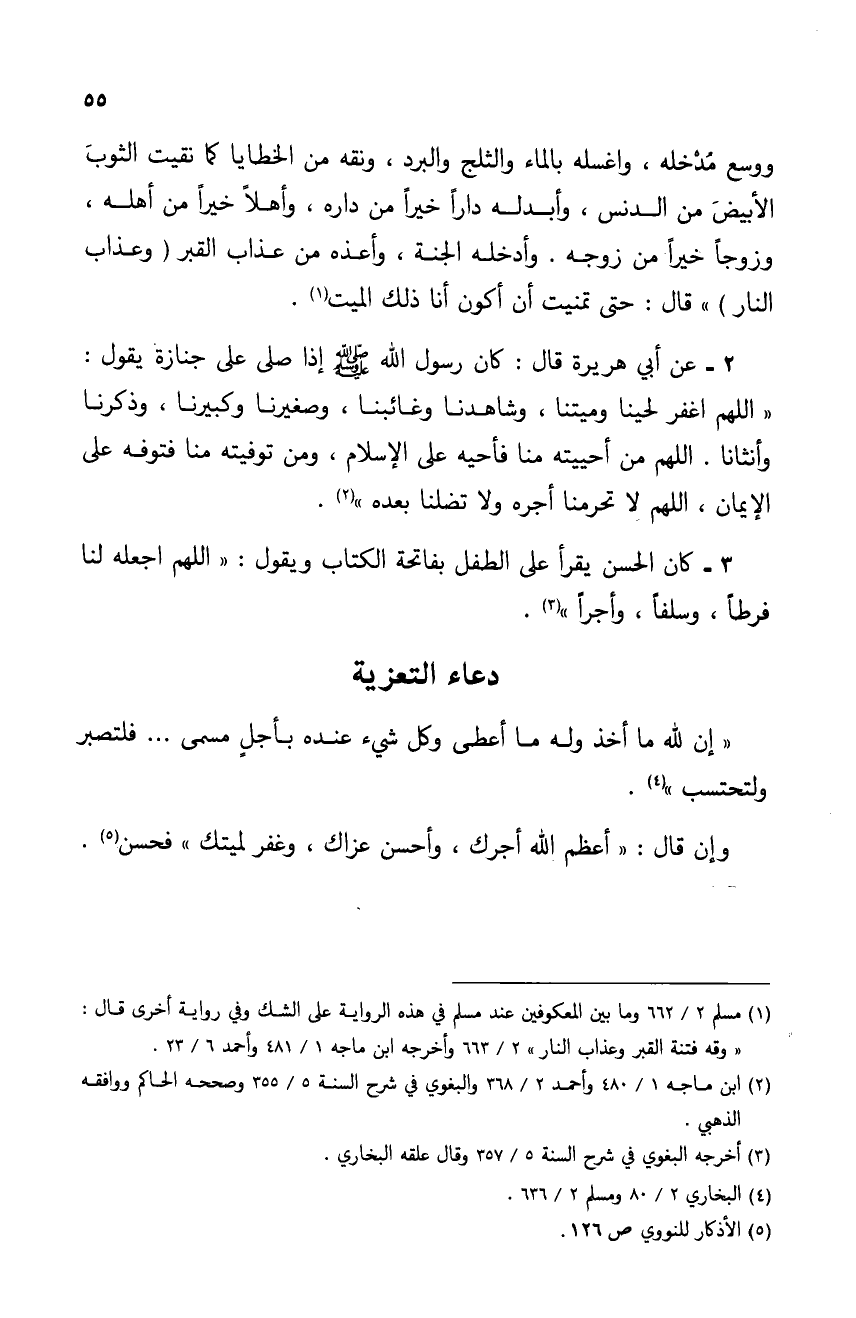 ٥٥
ووسع مُدْخله ، واغسله بالماء والثلج والبرد ، ونقه من الخطايا كما نقيت الثوبَ
الأبيضَ من الدنس ، وأبدله داراً خيراً من داره ، وأهلاً خيراً من أهله ،
وزوجاً خيراً من زوجه . وأدخله الجنة ، وأعذه من عذاب القبر ( وعذاب
النار ) » قال : حتى تمنيت أن أكون أنا ذلك الميت(١) .
٢ - عن أبي هريرة قال : كان رسول الله ﷺ إذا صلى على جنازة يقول :
« اللهم اغفر لحينا وميتنا ، وشاهدنا وغائبنا ، وصغيرنا وكبيرنا ، وذكرنا
وأنثانا . اللهم من أحييته منا فأحيه على الإسلام ، ومن توفيته منا فتوفه على
الإيمان ، اللهم لا تحرمنا أجره ولا تضلنا بعده »(٢) .
٣ - كان الحسن يقرأ على الطفل بفاتحة الكتاب ويقول : « اللهم اجعله لنا
فرطاً ، وسلفاً ، وأجراً »(٣) .
دعاء التعزية
« إن لله ما أخذ وله ما أعطى وكل شيء عنده بأجلٍ مسمى ... فلتصبر
ولتحتسب »(٤) .
وإن قال : « أعظم الله أجرك ، وأحسن عزاك ، وغفر لميتك » فحسن(٥) .
(١) مسلم ٢ / ٦٦٢ وما بين المعكوفين عند مسلم في هذه الرواية على الشك وفي رواية أخرى قال :
« وقه فتنة القبر وعذاب النار » ٢ / ٦٦٣ وأخرجه ابن ماجه ١ / ٤٨١ وأحمد ٦ / ٢٣ .
(٢) ابن ماجه ١ / ٤٨٠ وأحمد ٢ / ٣٦٨ والبغوي في شرح السنة ٥ / ٣٥٥ وصححه الحاكم ووافقه
الذهبي .
(٣) أخرجه البغوي في شرح السنة ٥ / ٣٥٧ وقال علقه البخاري .
(٤) البخاري ٢ / ٨٠ ومسلم ٢ / ٦٣٦ .
(٥) الأذكار للنووي ص ١٢٦ .